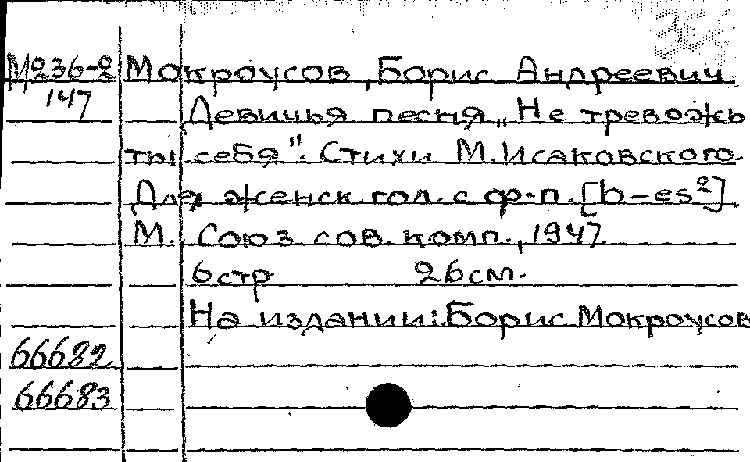 М236-2 Мокроусов, Борис Андреевич
147 Девичья песня „Не тревожь
ты себя". Стихи М.Исаковского.
Для женск гол. с ф-п. [b-es²]
М., Союз сов. комп., 1947
6 стр 26 см.
На издании: Борис Мокроусов
66682
66683